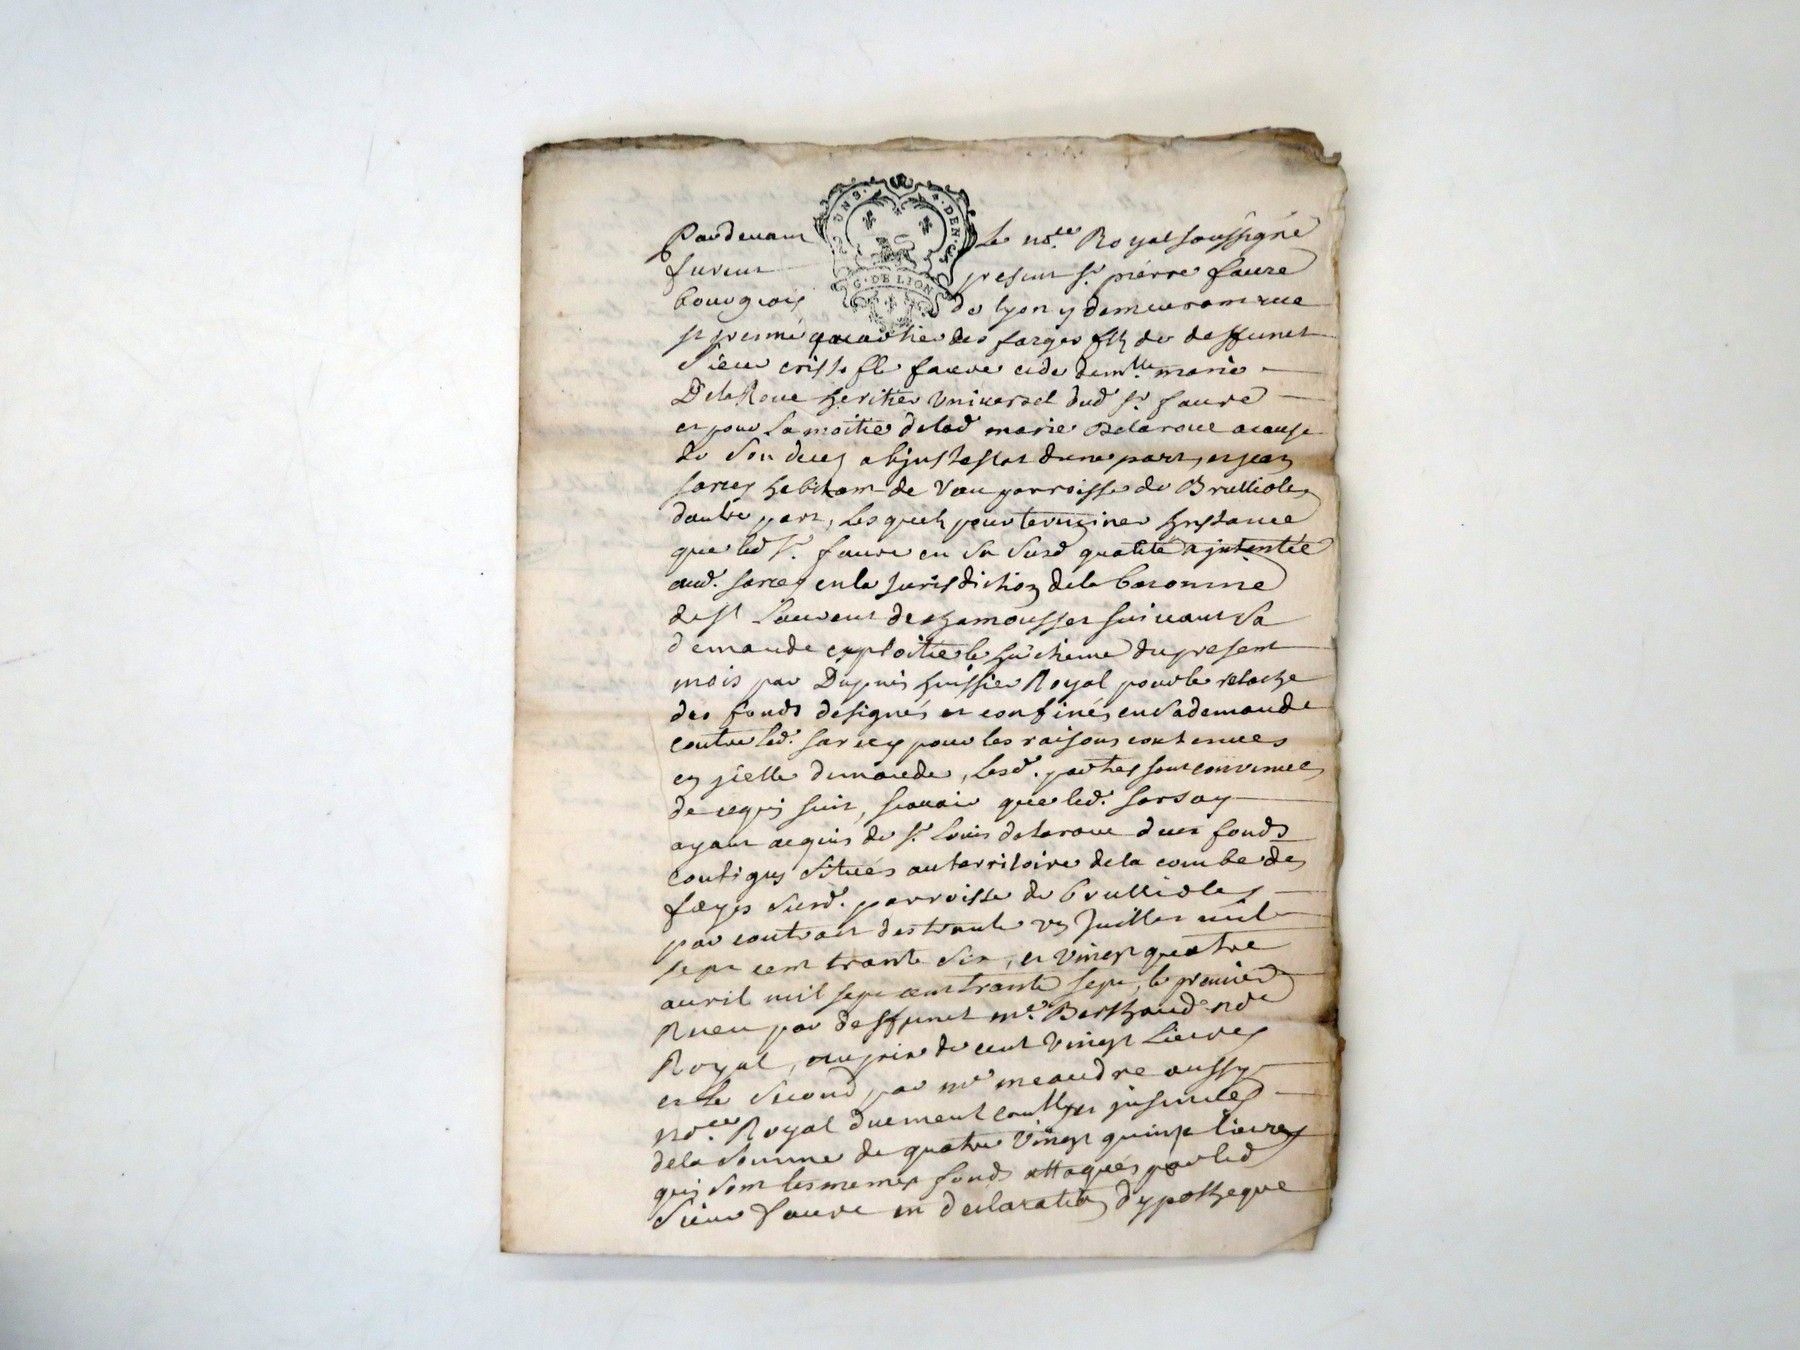 DEN.
G. DE LION
Pardevant Le no.re Royal soussigné
furent present Sr. pierre faure
bourgeois de lyon y demeurant rue
quartier des farges fils de deffunct
Sieur cristofle faure et de dem.lle marie
DelaRoue heritier Universel dud Sr. faure
et pour La moitié delad marie Delaroue acause
de Son deces abjntestat dune part, et jean
sarcey habitant de Vau parroisse de Brullioles
dautre part, Lesquels pour terminer Lynstance
que led Sr. faure en Sa Susd qualité a jntentée
aud. sarcey en la Jurisdiction dela baronnie
de St Laurent de chamousset suivant Sa
demande exploitée le huictieme du present
mois par Dupuis huissier Royal pour le relache
des fonds designés et confinés en Sa demande
contre led. sarcey pour les raisons contenues
en jcelle demande, Lesd. parties sont convenues
de ce qui suit, scavoir que led. sarsay
ayant acquis de Sr. Louis delaroue deux fonds
contigus Situés au territoire de la combe des
fayes Susd. parroisse de brullioles
par contract des trente un Juillet mil
sept cent trante Six, et Vingt quatre
auril mil sept cent trante sept, le premier
Receu par deffunct me. Berthaud no.re
Royal, au prix de cent Vingt Lieures
et Le Second par me meandre aussy
no.re Royal duement et jnsinués
dela Somme de quatre Vingt quinze lieures
qui Sont les memes fonds attaqués par led
Sieur faure en declaration d'ypotheque